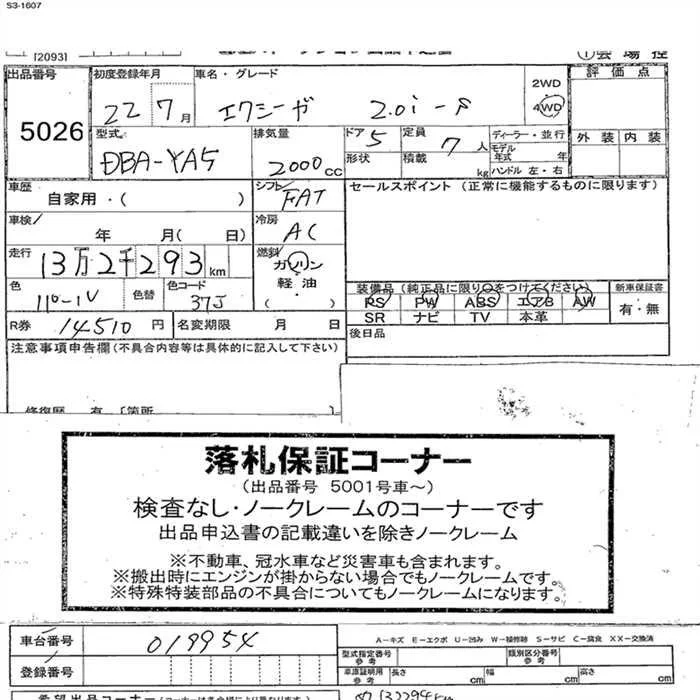 S3-1607
[2093]
①会場控
出品番号 初度登録年月 車名・グレード 2WD 評価点
5026 22 7月 エクシーガ 2.0i-S 4WD
型式 排気量 ドア 5 定員 7人 ディーラー・並行 外装 内装
DBA-YA5 2000cc 形状 積載 kg モデル年式 年
ハンドル 左・右
車歴 自家用・( ) シフト FAT セールスポイント (正常に機能するものに限ります)
車検 年 月( 日) 冷房 AC
走行 13万2千293km 燃料 ガソリン
軽油・
( )
色 色替 色コード 37J
装備品 (純正品に限り○をつけてください) 新車保証書
PS PW ABS エアB AW 有・無
SR ナビ TV 本革
R券 14510円 名変期限 月 日 後日品
注意事項申告欄(不具合内容等は具体的に記入して下さい)
修復歴 有 [箇所
落札保証コーナー
(出品番号 5001号車~)
検査なし・ノークレームのコーナーです
出品申込書の記載違いを除きノークレーム
※不動車、冠水車など災害車も含まれます。
※搬出時にエンジンが掛からない場合でもノークレームです。
※特殊特装部品の不具合についてもノークレームになります。
車台番号 019954
A-キズ E-エクボ U-凹み W-補修跡 S-サビ C-腐食 XX-交換済
型式指定番号 参考 類別区分番号 参考
登録番号 車庫証明用 参考 長さ cm 幅 cm 高さ cm
希望出品コーナー